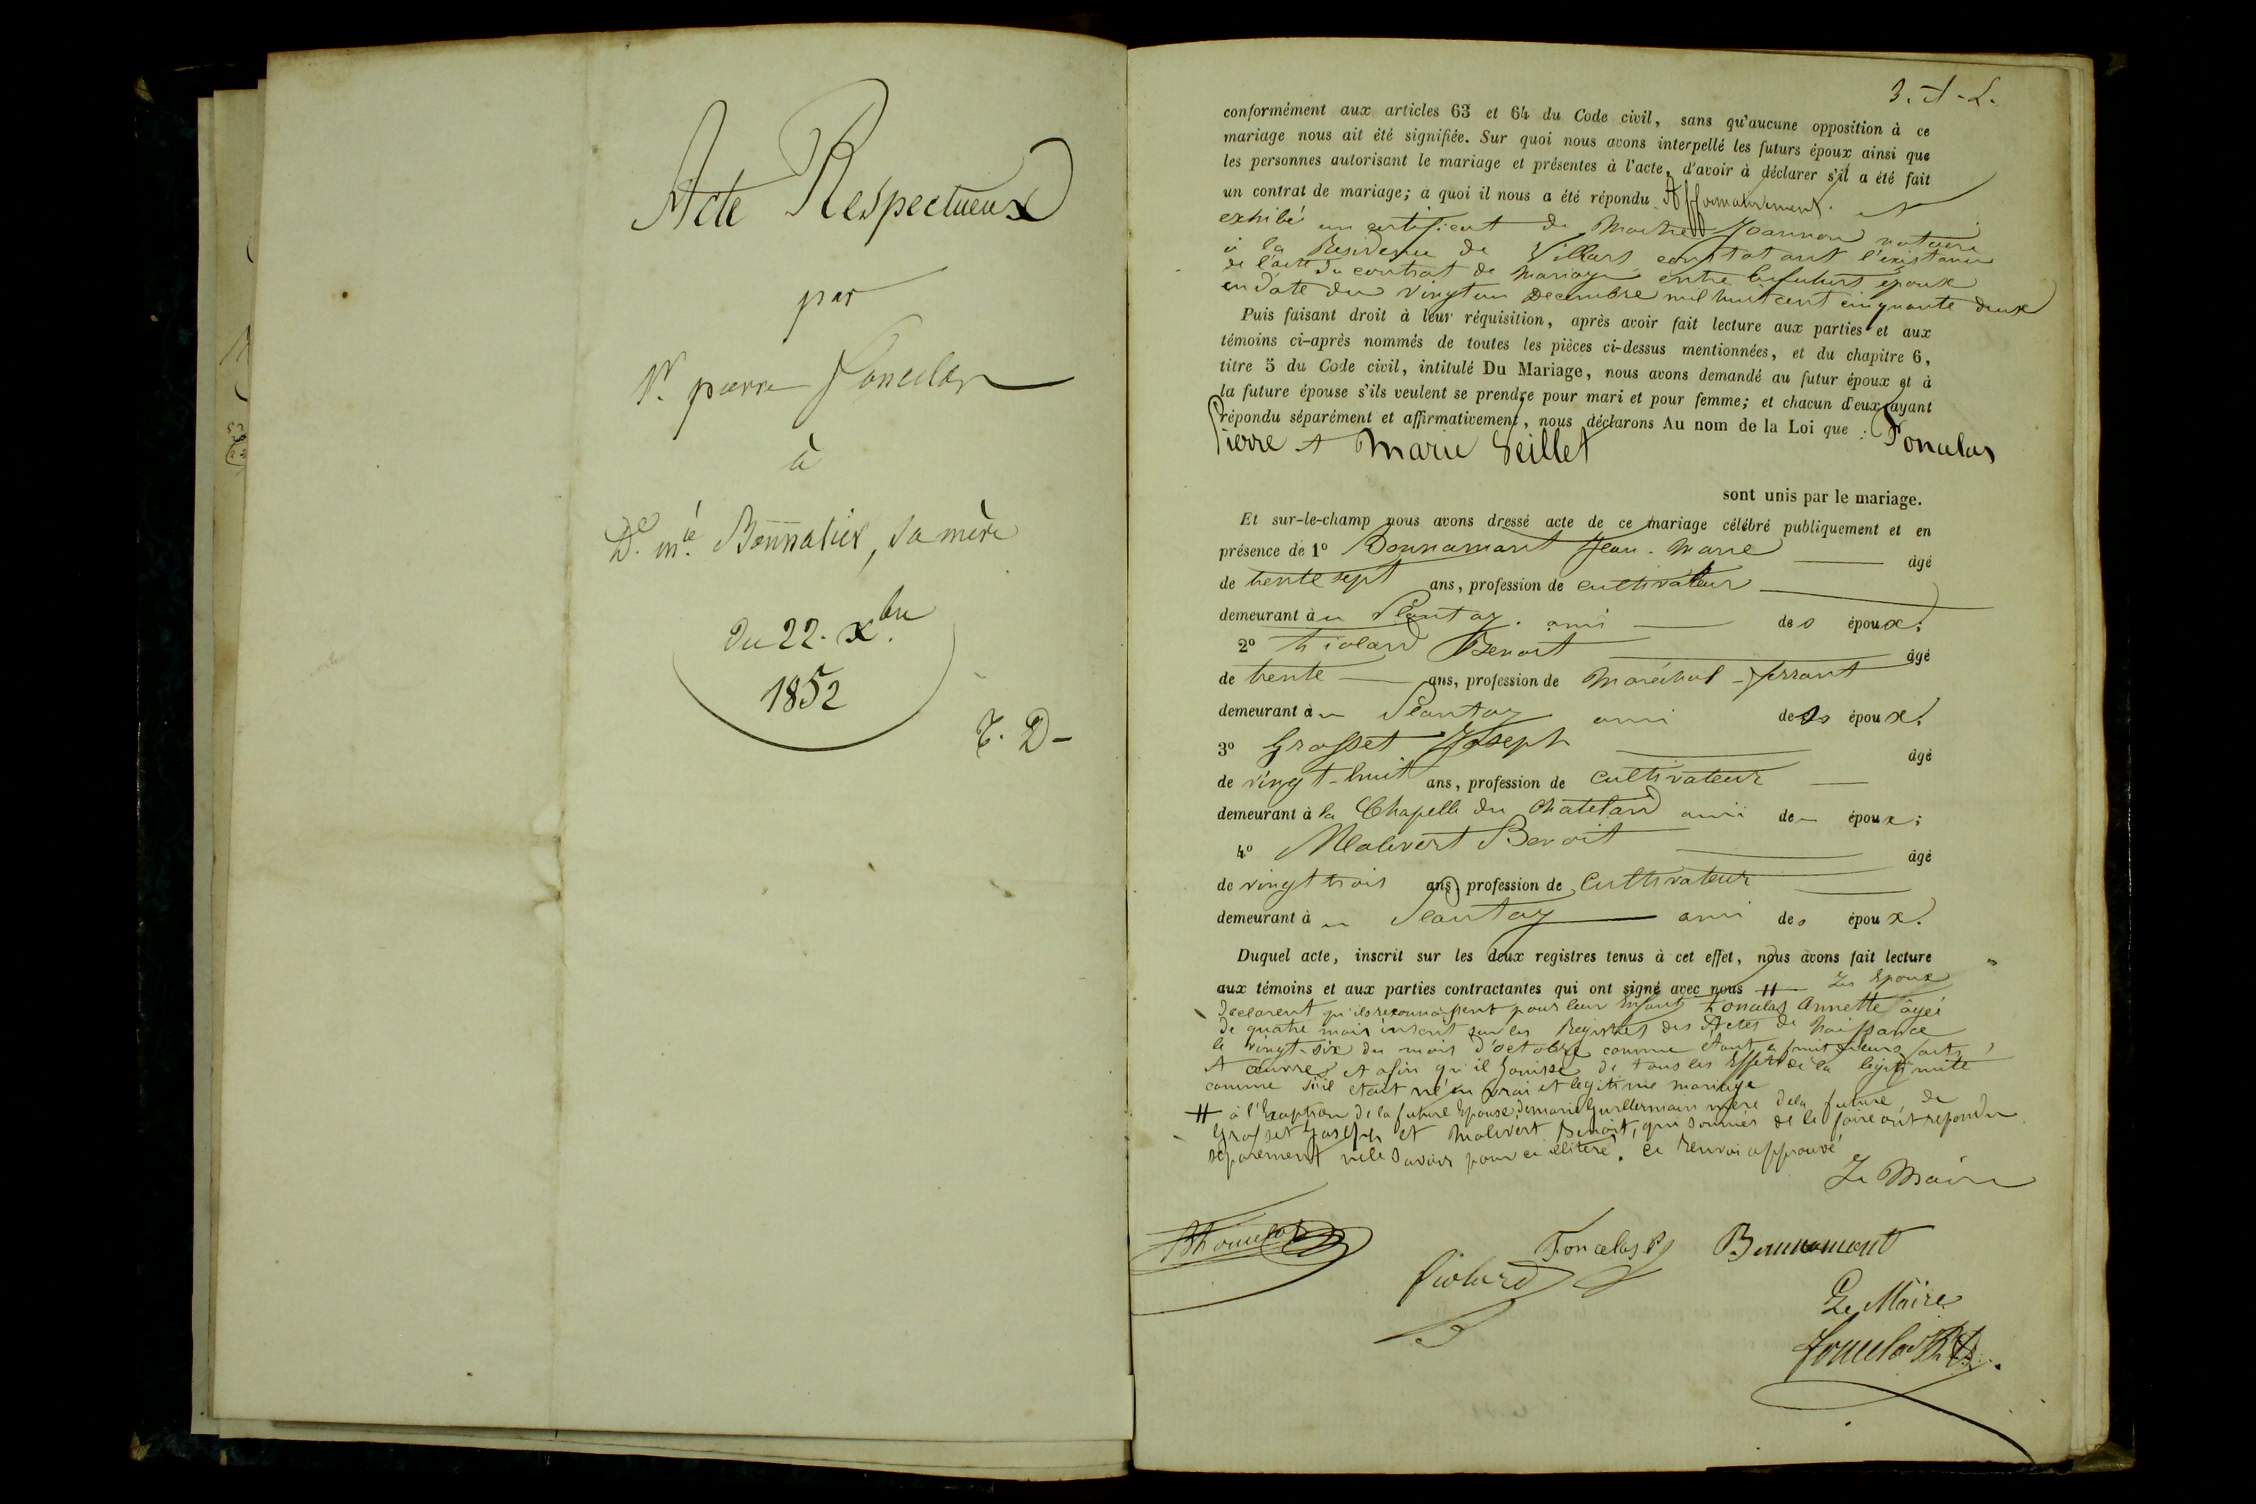 Acte Respectueux
par
Sr. pierre Foncelas
à
De. mie. Bonnatier, sa mère
du 22. xbre
1852
T. D-
3. A - L.
conformément aux articles 63 et 64 du Code civil, sans qu'aucune opposition à ce
mariage nous ait été signifiée. Sur quoi nous avons interpellé les futurs époux ainsi que
les personnes autorisant le mariage et présentes à l'acte, d'avoir à déclarer s'il a été fait
un contrat de mariage; à quoi il nous a été répondu Affirmativement. et
exhibé un certificat de Maitre Joannon notaire
à la Residence de Villars constatant l'existance
de l'acte du contrat de mariage entre les futurs époux
en date du vingt un Decembre mil huit cent cinquante deux
Puis faisant droit à leur réquisition, après avoir fait lecture aux parties et aux
témoins ci-après nommés de toutes les pièces ci-dessus mentionnées, et du chapitre 6,
titre 5 du Code civil, intitulé Du Mariage, nous avons demandé au futur époux et à
la future épouse s'ils veulent se prendre pour mari et pour femme; et chacun d'eux ayant
répondu séparément et affirmativement, nous déclarons Au nom de la Loi que : Foncelas
Pierre et Marie Seillet
sont unis par le mariage.
Et sur-le-champ nous avons dressé acte de ce mariage célébré publiquement et en
présence de 1º Bonnamant Jean-Marie âgé
de trente sept ans, profession de cultivateur
demeurant à u Plantay. ami des époux.
2º Violard Benoit âgé
de trente ans, profession de Maréchal-ferrant
demeurant à u Plantay ami des époux.
3º Grosset Joseph âgé
de vingt-huit ans, profession de cultivateur
demeurant à la Chapelle du Chatelard ami des époux;
4º Malivert Benoit âgé
de vingt trois ans, profession de cultivateur
demeurant à u Plantay ami des époux.
Duquel acte, inscrit sur les deux registres tenus à cet effet, nous avons fait lecture
aux témoins et aux parties contractantes qui ont signé avec nous # Les Epoux
Declarent qu'ils reconnaissent pour leur Enfant Foncelas Annette âgée
de quatre mois inscrit sur les Registres des Actes de Naissance
le vingt-six du mois d'octobre comme étant
et œuvres et afin qu'il jouisse de tous les Effets de la légitimité
comme s'il etait né en vrai et legitime mariage
# à l'Exception de la future Epouse, de marie Guillermain mère de la future de
Grosset Joseph et Malivert Benoit, qui sommés de le faire ont repondu
séparement ne le savoir pour ce illiteré. ce renvoi approuvé
Le Maire
Foncelas P Bonnamant
Violard
Le Maire